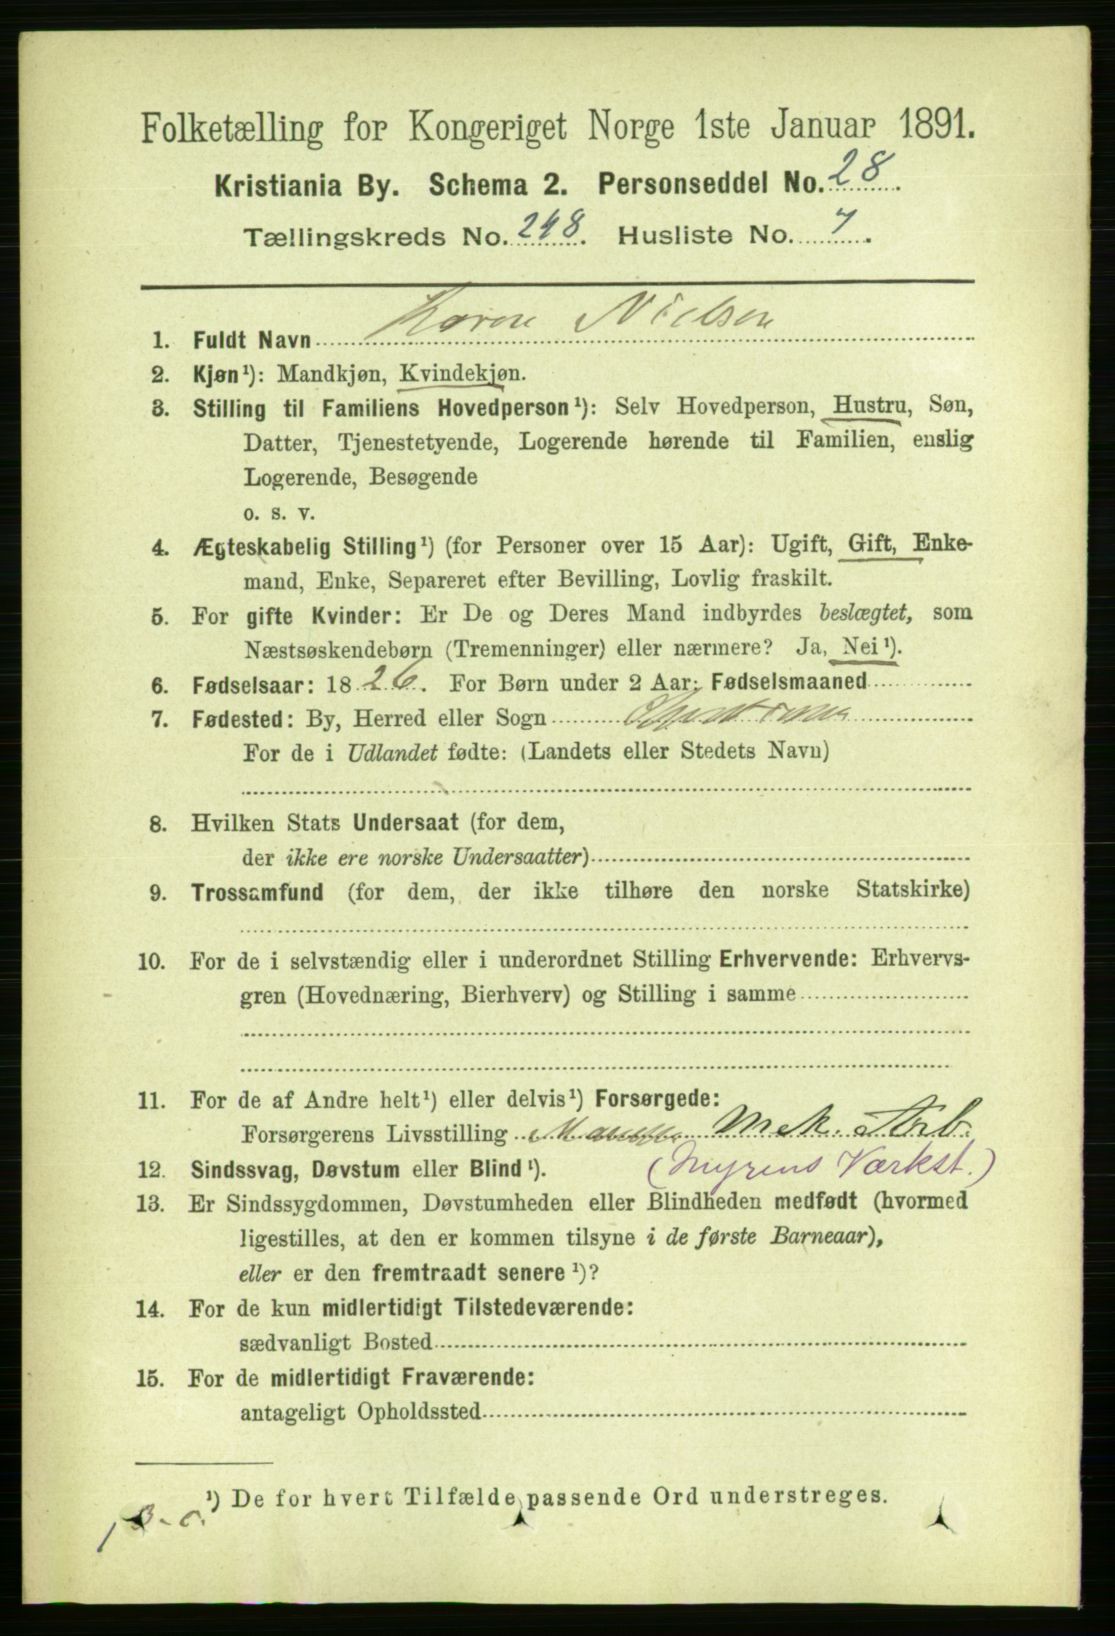 Folketælling for Kongeriget Norge 1ste Januar 1891.
Kristiania By. Schema 2. Personseddel No. 28.
Tællingskreds No. 248. Husliste No. 7.
1. Fuldt Navn Karen Nielsen
2. Kjøn¹): Mandkjøn, Kvindekjøn.
3. Stilling til Familiens Hovedperson¹): Selv Hovedperson, Hustru, Søn,
Datter, Tjenestetyende, Logerende hørende til Familien, enslig
Logerende, Besøgende
o. s. v.
4. Ægteskabelig Stilling¹) (for Personer over 15 Aar): Ugift, Gift, Enke-
mand, Enke, Separeret efter Bevilling, Lovlig fraskilt.
5. For gifte Kvinder: Er De og Deres Mand indbyrdes beslægtet, som
Næstsøskendebørn (Tremenninger) eller nærmere? Ja, Nei¹).
6. Fødselsaar: 1826. For Børn under 2 Aar: Fødselsmaaned
7. Fødested: By, Herred eller Sogn
For de i Udlandet fødte: (Landets eller Stedets Navn)
8. Hvilken Stats Undersaat (for dem,
der ikke ere norske Undersaatter)
9. Trossamfund (for dem, der ikke tilhøre den norske Statskirke)
10. For de i selvstændig eller i underordnet Stilling Erhvervende: Erhvervs-
gren (Hovednæring, Bierhverv) og Stilling i samme
11. For de af Andre helt¹) eller delvis¹) Forsørgede:
Forsørgerens Livsstilling Mek. Arb.
(Myrens Værkst.)
12. Sindssvag, Døvstum eller Blind¹).
13. Er Sindssygdommen, Døvstumheden eller Blindheden medfødt (hvormed
ligestilles, at den er kommen tilsyne i de første Barneaar),
eller er den fremtraadt senere¹)?
14. For de kun midlertidigt Tilstedeværende:
sædvanligt Bosted
15. For de midlertidigt Fraværende:
antageligt Opholdssted
¹) De for hvert Tilfælde passende Ord understreges.